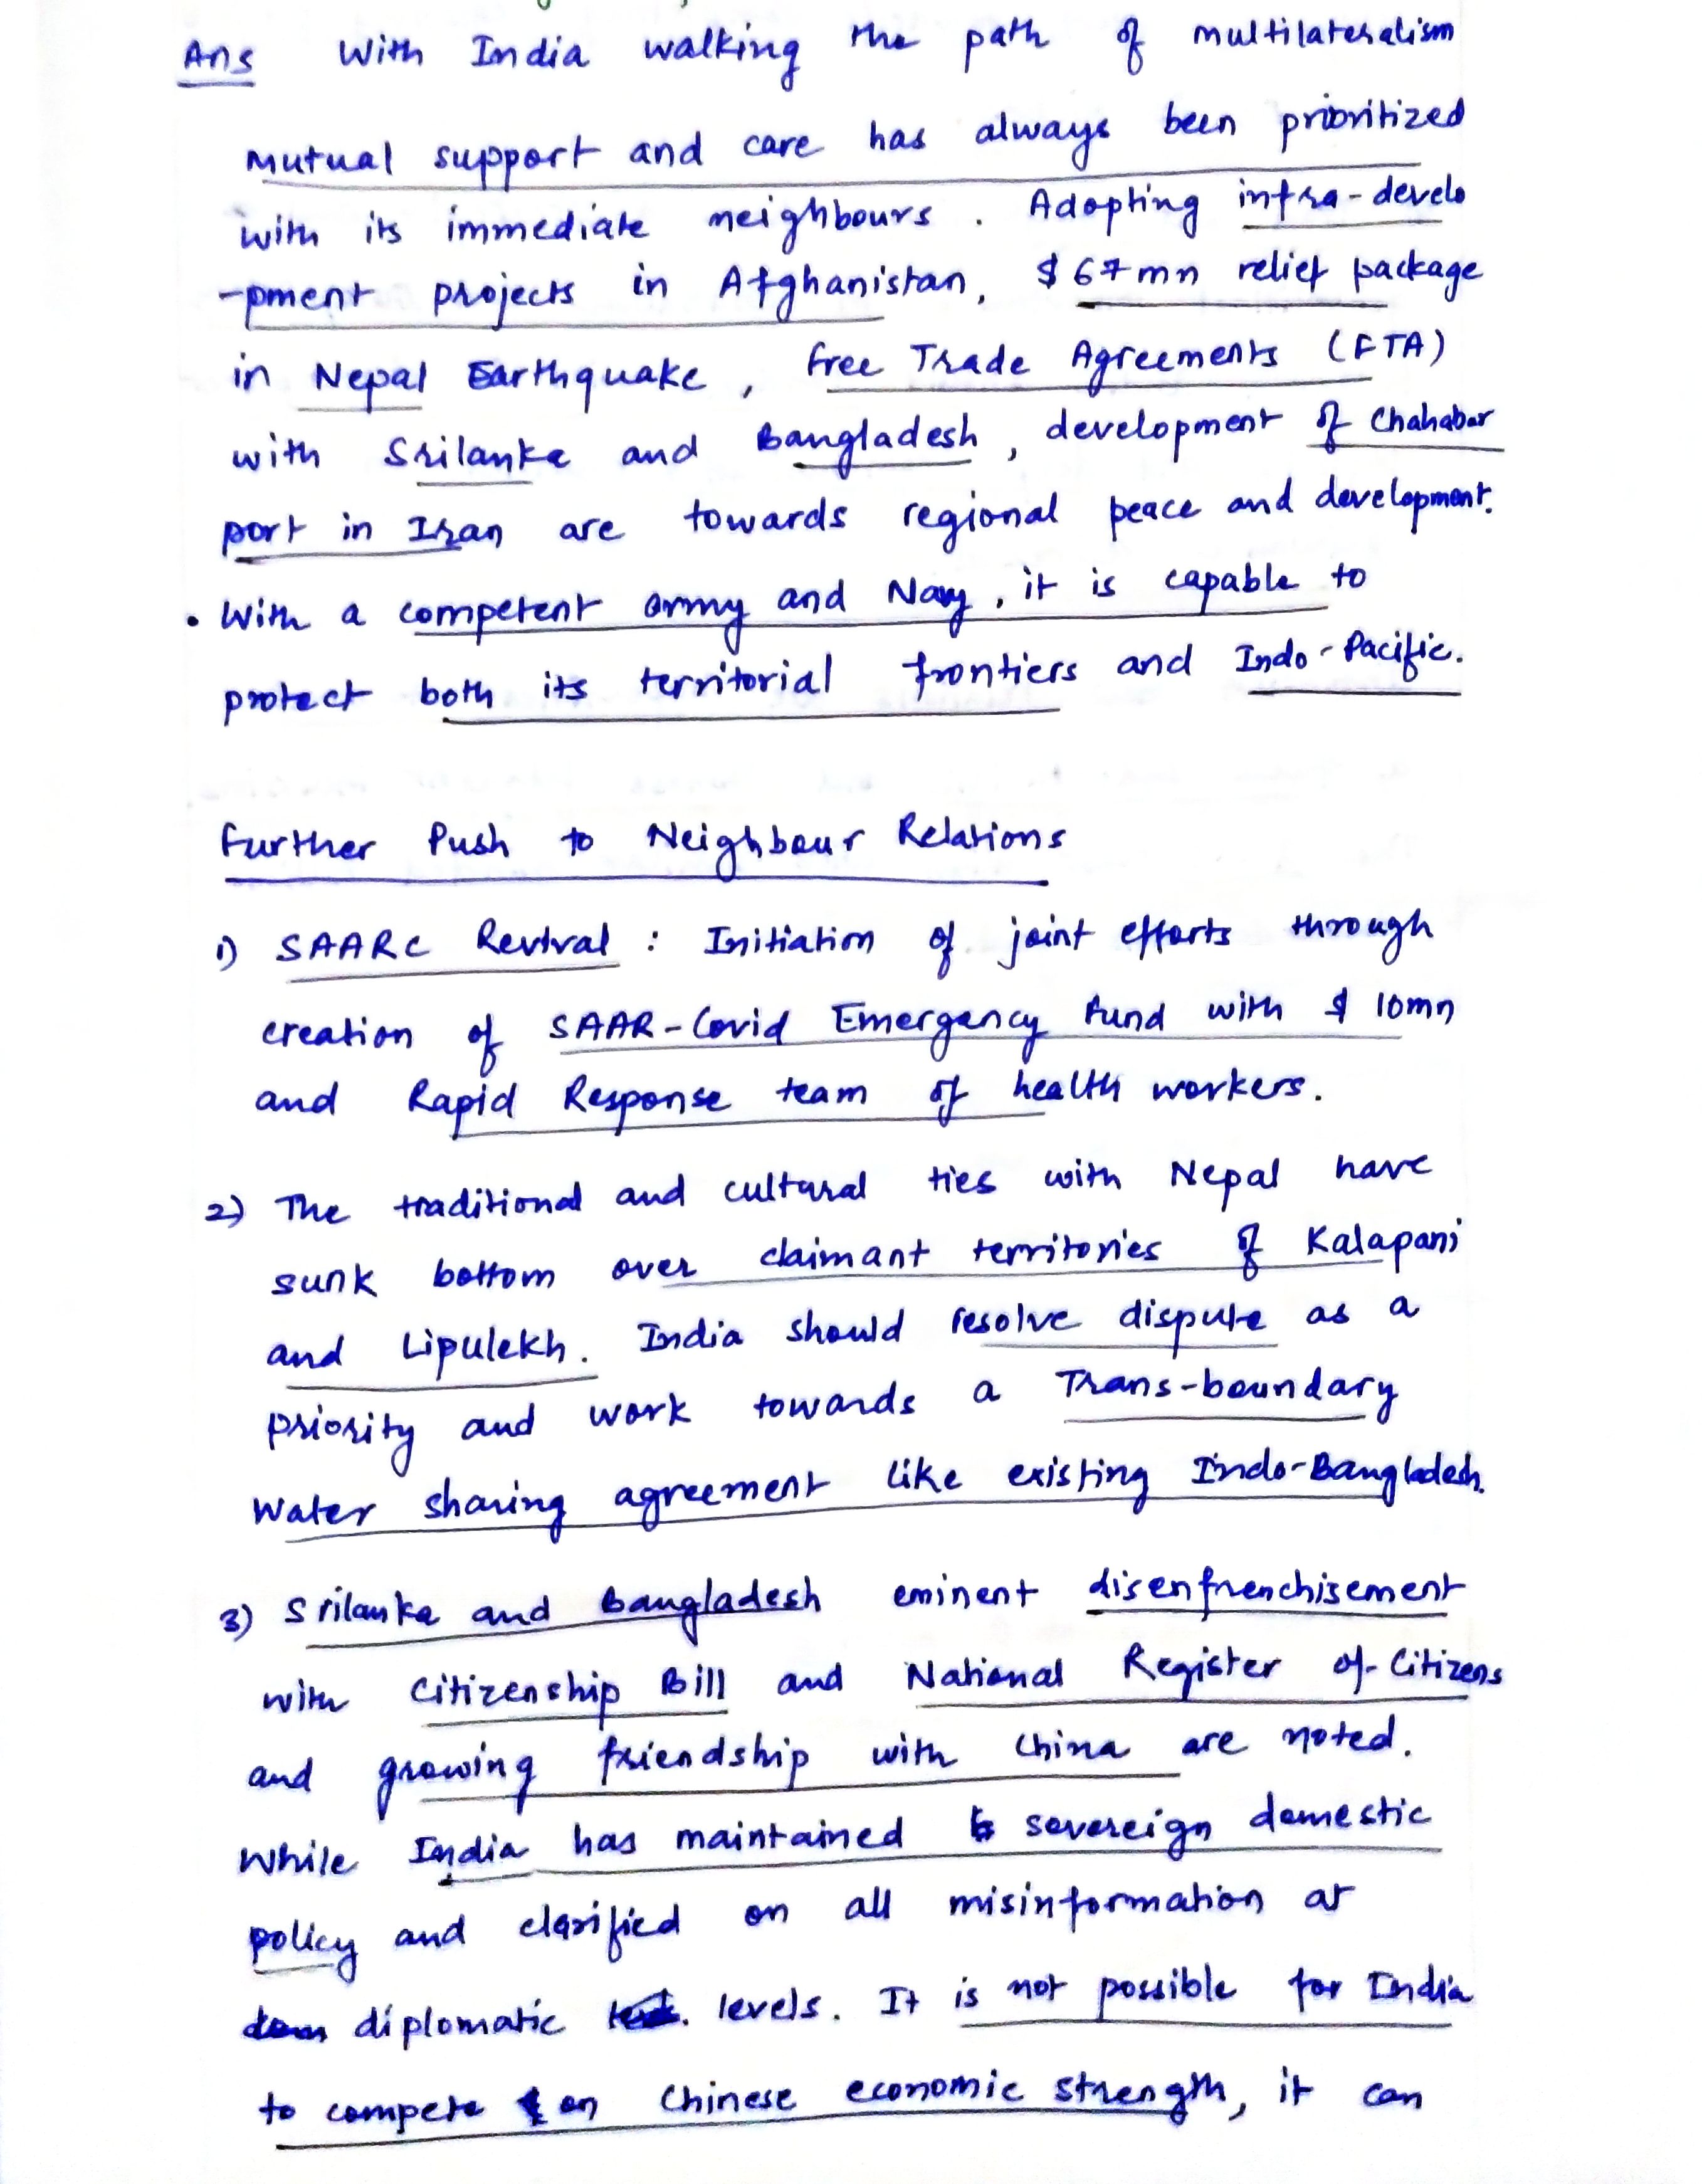 Ans With India walking the path of multilateralism
mutual support and care has always been prioritized
with its immediate neighbours. Adopting infra-develo
-pment projects in Afghanistan, $67mn relief package
in Nepal Earthquake, Free Trade Agreements (FTA)
with Srilanka and Bangladesh, development of Chahabar
port in Iran are towards regional peace and development.
• With a competent army and Navy, it is capable to
protect both its territorial frontiers and Indo-Pacific.
Further Push to Neighbour Relations
1) SAARC Revival: Initiation of joint efforts through
creation of SAAR-Covid Emergency Fund with $ 10mn
and Rapid Response team of health workers.
2) The traditional and cultural ties with Nepal have
sunk bottom over claimant territories of Kalapani
and Lipulekh. India should resolve dispute as a
priority and work towards a Trans-boundary
Water sharing agreement like existing Indo-Bangladesh.
3) Srilanka and Bangladesh eminent disenfrenchisement
with Citizenship Bill and National Register of Citizens
and growing friendship with China are noted.
While India has maintained sovereign domestic
policy and clarified on all misinformation at
diplomatic levels. It is not possible for India
to compete on Chinese economic strength, it can